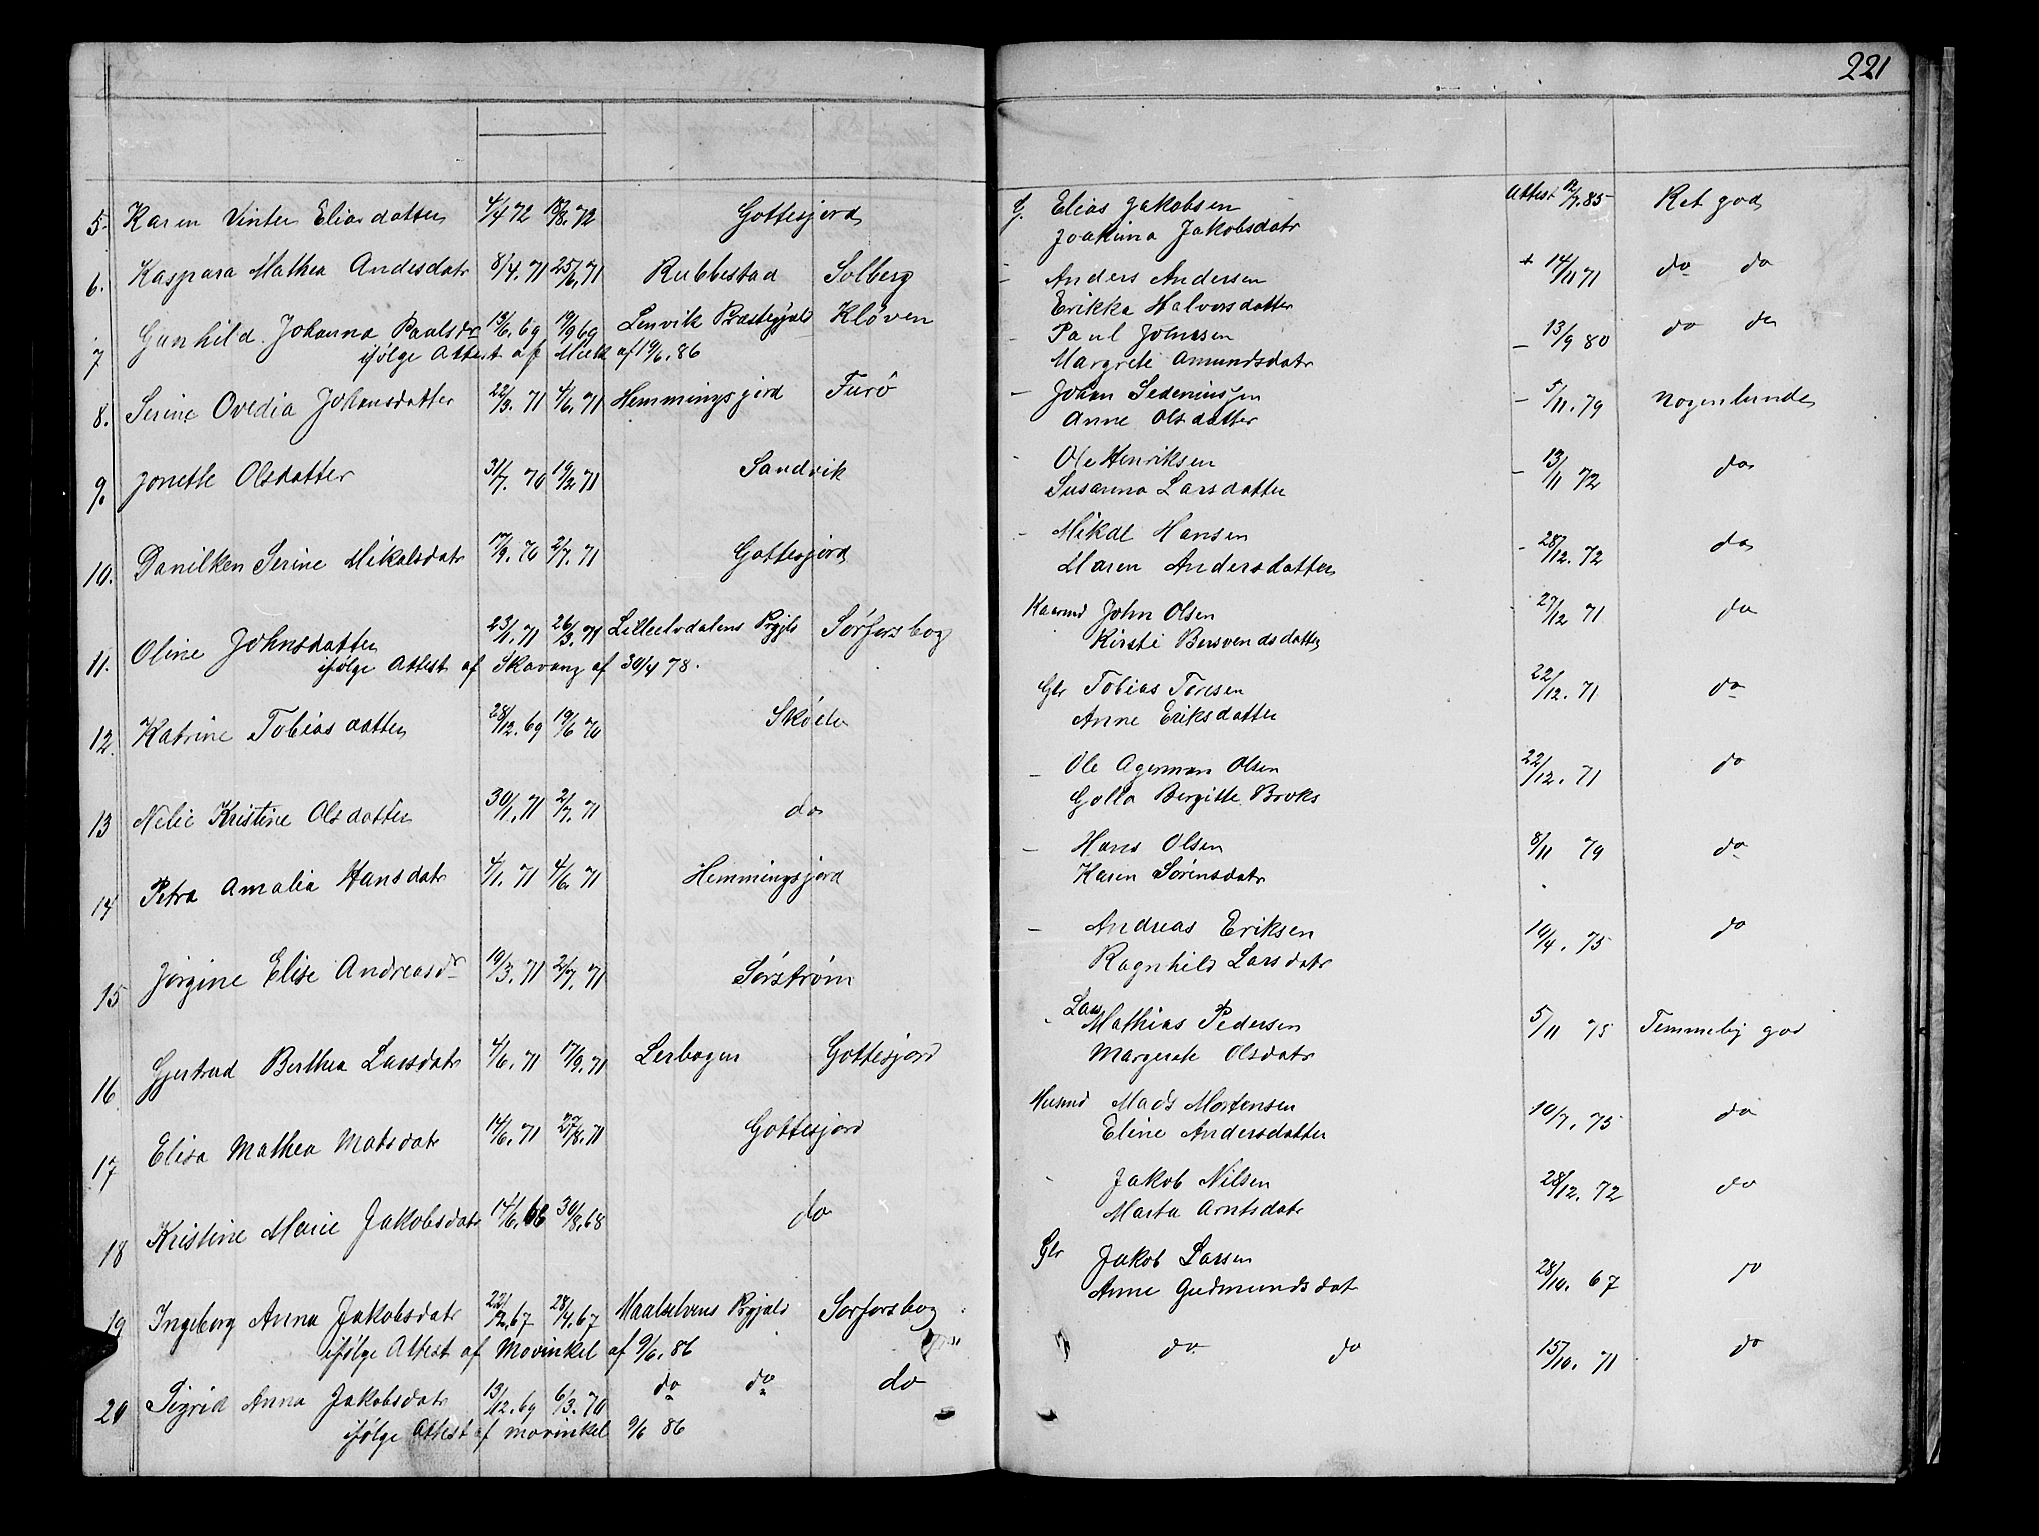 221
5. Karen Vinter Eliasdatter 4/4 72 18/8. 72 Gottesjord G. Elias Jakobsen Attest 12/7. 85 Ret god
Joakima Jakobsdatr
6. Kaspara Mathea Andesdatr 8/4. 71 25/6. 71 Rubbestad Solberg – Anders Andersen + 14/11 71 do do
Erikka Halvorsdatter
7 Gunhild Johanna Paulsdr 13/6. 69 19/9 69 Lenvik Præstegjeld Kløven – Paul Johnsen – 13/9 80 do do
ifølge Attest af af 19/6. 86 Margrete Amundsdatr
8. Serine Ovedia Johansdatter 22/3. 71 4/6. 71 Hemmingsjord Furø – Johan Sedeniussen – 5/11. 79 nogenlunde
Anne Olsdatter
9. Jonette Olsdatter 31/7. 70 19/2 71 Sandvik - Ole Henriksen – 13/11 72 do
Susanna Larsdatter
10. Danilken Serine Mikalsdatr 17/9. 70 2/7. 71 Gottesjord - Mikal Hansen - 28/12. 72 do
Maren Andersdatter
11. Oline Johnsdatter 23/1. 71 26/3. 71 Lilleelvdalens Prgjld Sørforsbog Kaarmd John Olsen - 27/12 71 do
ifølge Attest af Skavang af 30/4 78. Kirsti Bersvendsdatter
12. Katrine Tobiasdatter 28/12. 69 19/6 70 Skøelv Gbr Tobias Toresen 22/12. 71 do
Anne Eriksdatter
13 Nelie Kristine Olsdatter 30/1. 71 2/7. 71 do – Ole Agerman Olsen 22/12. 71 do
Golla Bergitte Broks
14 Petra Amalia Hansdatr 4/1. 71 4/6. 71 Hemmingsjord – Hans Olsen 8/11 79 do
Karen Sørensdatr
15 Jørgine Elise Andreasdr 19/3. 71 2/7. 71 Sørstrøm – Andreas Eriksen 10/4. 75 do
Ragnhild Larsdatr
16 Gjertrud Berthea Larsdatr 4/6. 71 17/9. 71 Lerbogen Gottesjord - Lars Mathias Pedersen 5/11 75 Temmelig god
Margrete Olsdatr
17 Elisa Mathea Matsdatr 14/6. 71 27/8. 71 Gottesjord Husmd Mads Mortensen 10/7. 75 do
Eline Andersdatter
18 Kristine Marie Jakobsdatr 14/6. 68 30/8. 68 do - Jakob Nilsen 28/12. 72 do
Marta Arntsdatr
19 Ingeborg Anna Jakobsdatr 22/2. 67 28/4. 67 Maalselvens Prgjeld Sørforsbog Gbr Jakob Larsen 28/10. 67 do
ifølge Attest af Movinkel af 9/6. 86 Anne Gudmundsdat
20 Sigrid Anna Jakobsdatr 13/12. 69 6/3. 70 do do do do do 15/10. 71 do
ifølge Attest af Movinkel 9/6 86